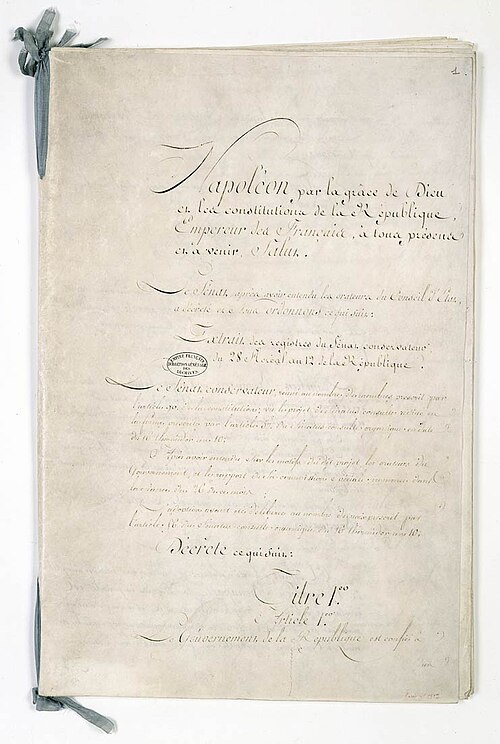 1.
Napoléon par la grâce de Dieu
et les constitutions de la République,
Empereur des Français, à tous présens
et à venir, Salut.
Le Sénat, après avoir entendu les orateurs du Conseil d'Etat,
a décrété et nous ordonnons ce qui suit:
Extrait des registres du Sénat conservateur
du 28 floréal an 12 de la République.
EMPIRE FRANÇAIS
DIRECTION GÉNÉRALE
DES
ARCHIVES
Le Sénat conservateur, réuni au nombre de membres prescrit par
l'article 90 de la constitution; vu le projet de sénatus-consulte rédigé en
la forme prescrite par l'article 57 du sénatus-consulte organique en date
du 16 thermidor an 10;
Après avoir entendu sur les motifs dudit projet les orateurs du
Gouvernement, et le rapport de la commission spéciale, nommée dans
la séance du 26 de ce mois;
L'adoption ayant été délibérée au nombre de voix prescrit par
l'article 56 du sénatus-consulte organique du 16 thermidor an 10,
Décrète ce qui suit:
Titre 1er
Article 1er
Le Gouvernement de la République est confié à